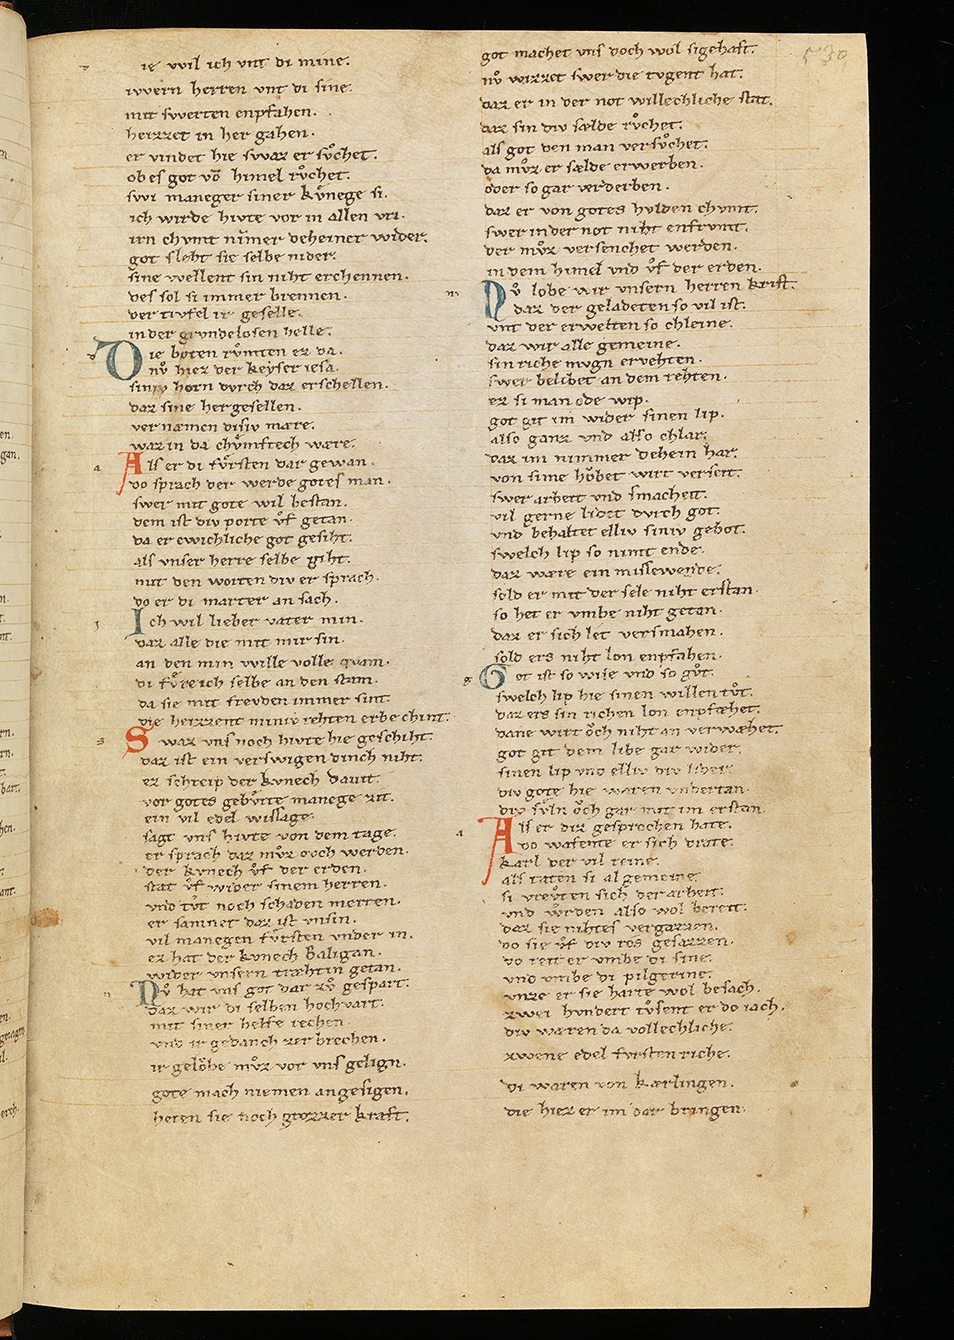 ie wil ich vnt di mine.
iwern herren vnt di sine.
mit swerten enpfahen.
heizzet in her gahen.
er vindet hie swaz er sůchet.
ob es got vō himel růchet.
swi maneger siner kůnege si.
ich wirde hivte vor in allen vri.
irn chvmt nimer deheiner wider.
got sleht sie selbe nider.
sine wellent sin niht erchennen.
des sol si immer brennen.
der tivfel ir geselle.
in der grvndelosen helle.
Die boten růmten ez da.
nv̊ hiez der keyser iesa.
siniv horn dvrch daz erschellen.
daz sine hergesellen.
vernæmen disiv mære.
waz in da chv̊mftech wære.
Als er di fv̊rsten dar gewan.
do sprach der werde gotes man.
swer mit gote wil bestan.
dem ist div porte v̊f getan.
da er ewichliche got gesiht.
als vnser herre selbe giht.
mit den worten div er sprach.
do er di marter an sach.
Ich wil lieber vater min.
daz alle die mit mir sin.
an den min wille volle quam.
di fv̊re ich selbe an den stam.
da sie mit frevden immer sint.
die heizzent miniv rehten erbe chint.
Swaz vns noch hivte hie geschiht.
daz ist ein verswigen dinch niht.
ez schreip der kvnech dauit.
vor gotes gebv̊rte manege zit.
ein vil edel wissage.
sagt vns hivte von dem tage.
er sprach daz mv̊z ovch werden.
der kvnech v̊f der erden.
stat v̊f wider sinem herren.
vnd tv̊t noch schaden merren.
er saminet daz ist vnsin.
vil manegen fv̊rsten vnder in.
ez hat der kvnech Baligan.
wider vnsern træhtin getan.
Nv̊ hat vns got dar zv̊ gespart.
daz wir di selben hochvart.
mit siner helfe rechen.
vnd ir gedanch zerbrechen.
ir gelŏbe mv̊z vor vns gelign.
gote mach niemen angesigen.
heten sie noch grozzer kraft.
got machet vns doch wol sigehaft.
nv̊ wizzet swer die tvgent hat.
daz er in der not willechliche stat.
daz sin div sælde rv̊chet.
als got den man versv̊chet.
da mv̊z er sælde erwerben.
oder so gar verderben.
daz er von gotes hvlden chvmt.
swer in der not niht enfrvmt.
der mv̊z versenchet werden.
in dem himel vnd v̊f der erden.
Nv̊ lobe wir vnsern herren krist.
daz der geladeten so vil ist.
vnt der erwelten so chleine.
daz wir alle gemeine.
sin riche mvgn ervehten.
swer belibet an dem rehten.
ez si man ode wip.
got git im wider sinen lip.
also ganz vnd also chlar.
daz im nimmer dehein har.
von sime hŏbet wirt verseit.
swer arbeit vnd smacheit.
vil gerne lidet dvrch got.
vnd behaltet elliv siniv gebot.
swelch lip so nimt ende.
daz wære ein missewende.
sold er mit der sele niht erstan.
so het er vmbe niht getan.
daz er sich let versmahen.
sold ers niht lon enpfahen.
Got ist so wise vnd so gv̊t.
swelch lip hie sinen willen tv̊t.
daz ers sin richen lon enpfæhet.
dane wirt ŏch niht an verwæhet.
got git dem libe gar wider.
sinen lip vnd elliv div lider.
div gote hie waren vndertan.
div sv̊ln ŏch gar mit im erstan.
Als er diz gesprochen hate.
do wafente er sich drate.
karl der vil reine.
als taten si al gemeine.
si vrev̊ten sich der arbeit.
vnd wrden also wol bereit.
daz sie nihtes vergazzen.
do sie v̊f div ros gesazzen.
do reit er vmbe di sine.
vnd vmbe di pilgerine.
vnze er sie harte wol besach.
zwei hvndert tv̊sent er do iach.
div waren da vollechliche.
zwene edel fvrsten riche.
di waren von kærlingen.
die hiez er im dar bringen.